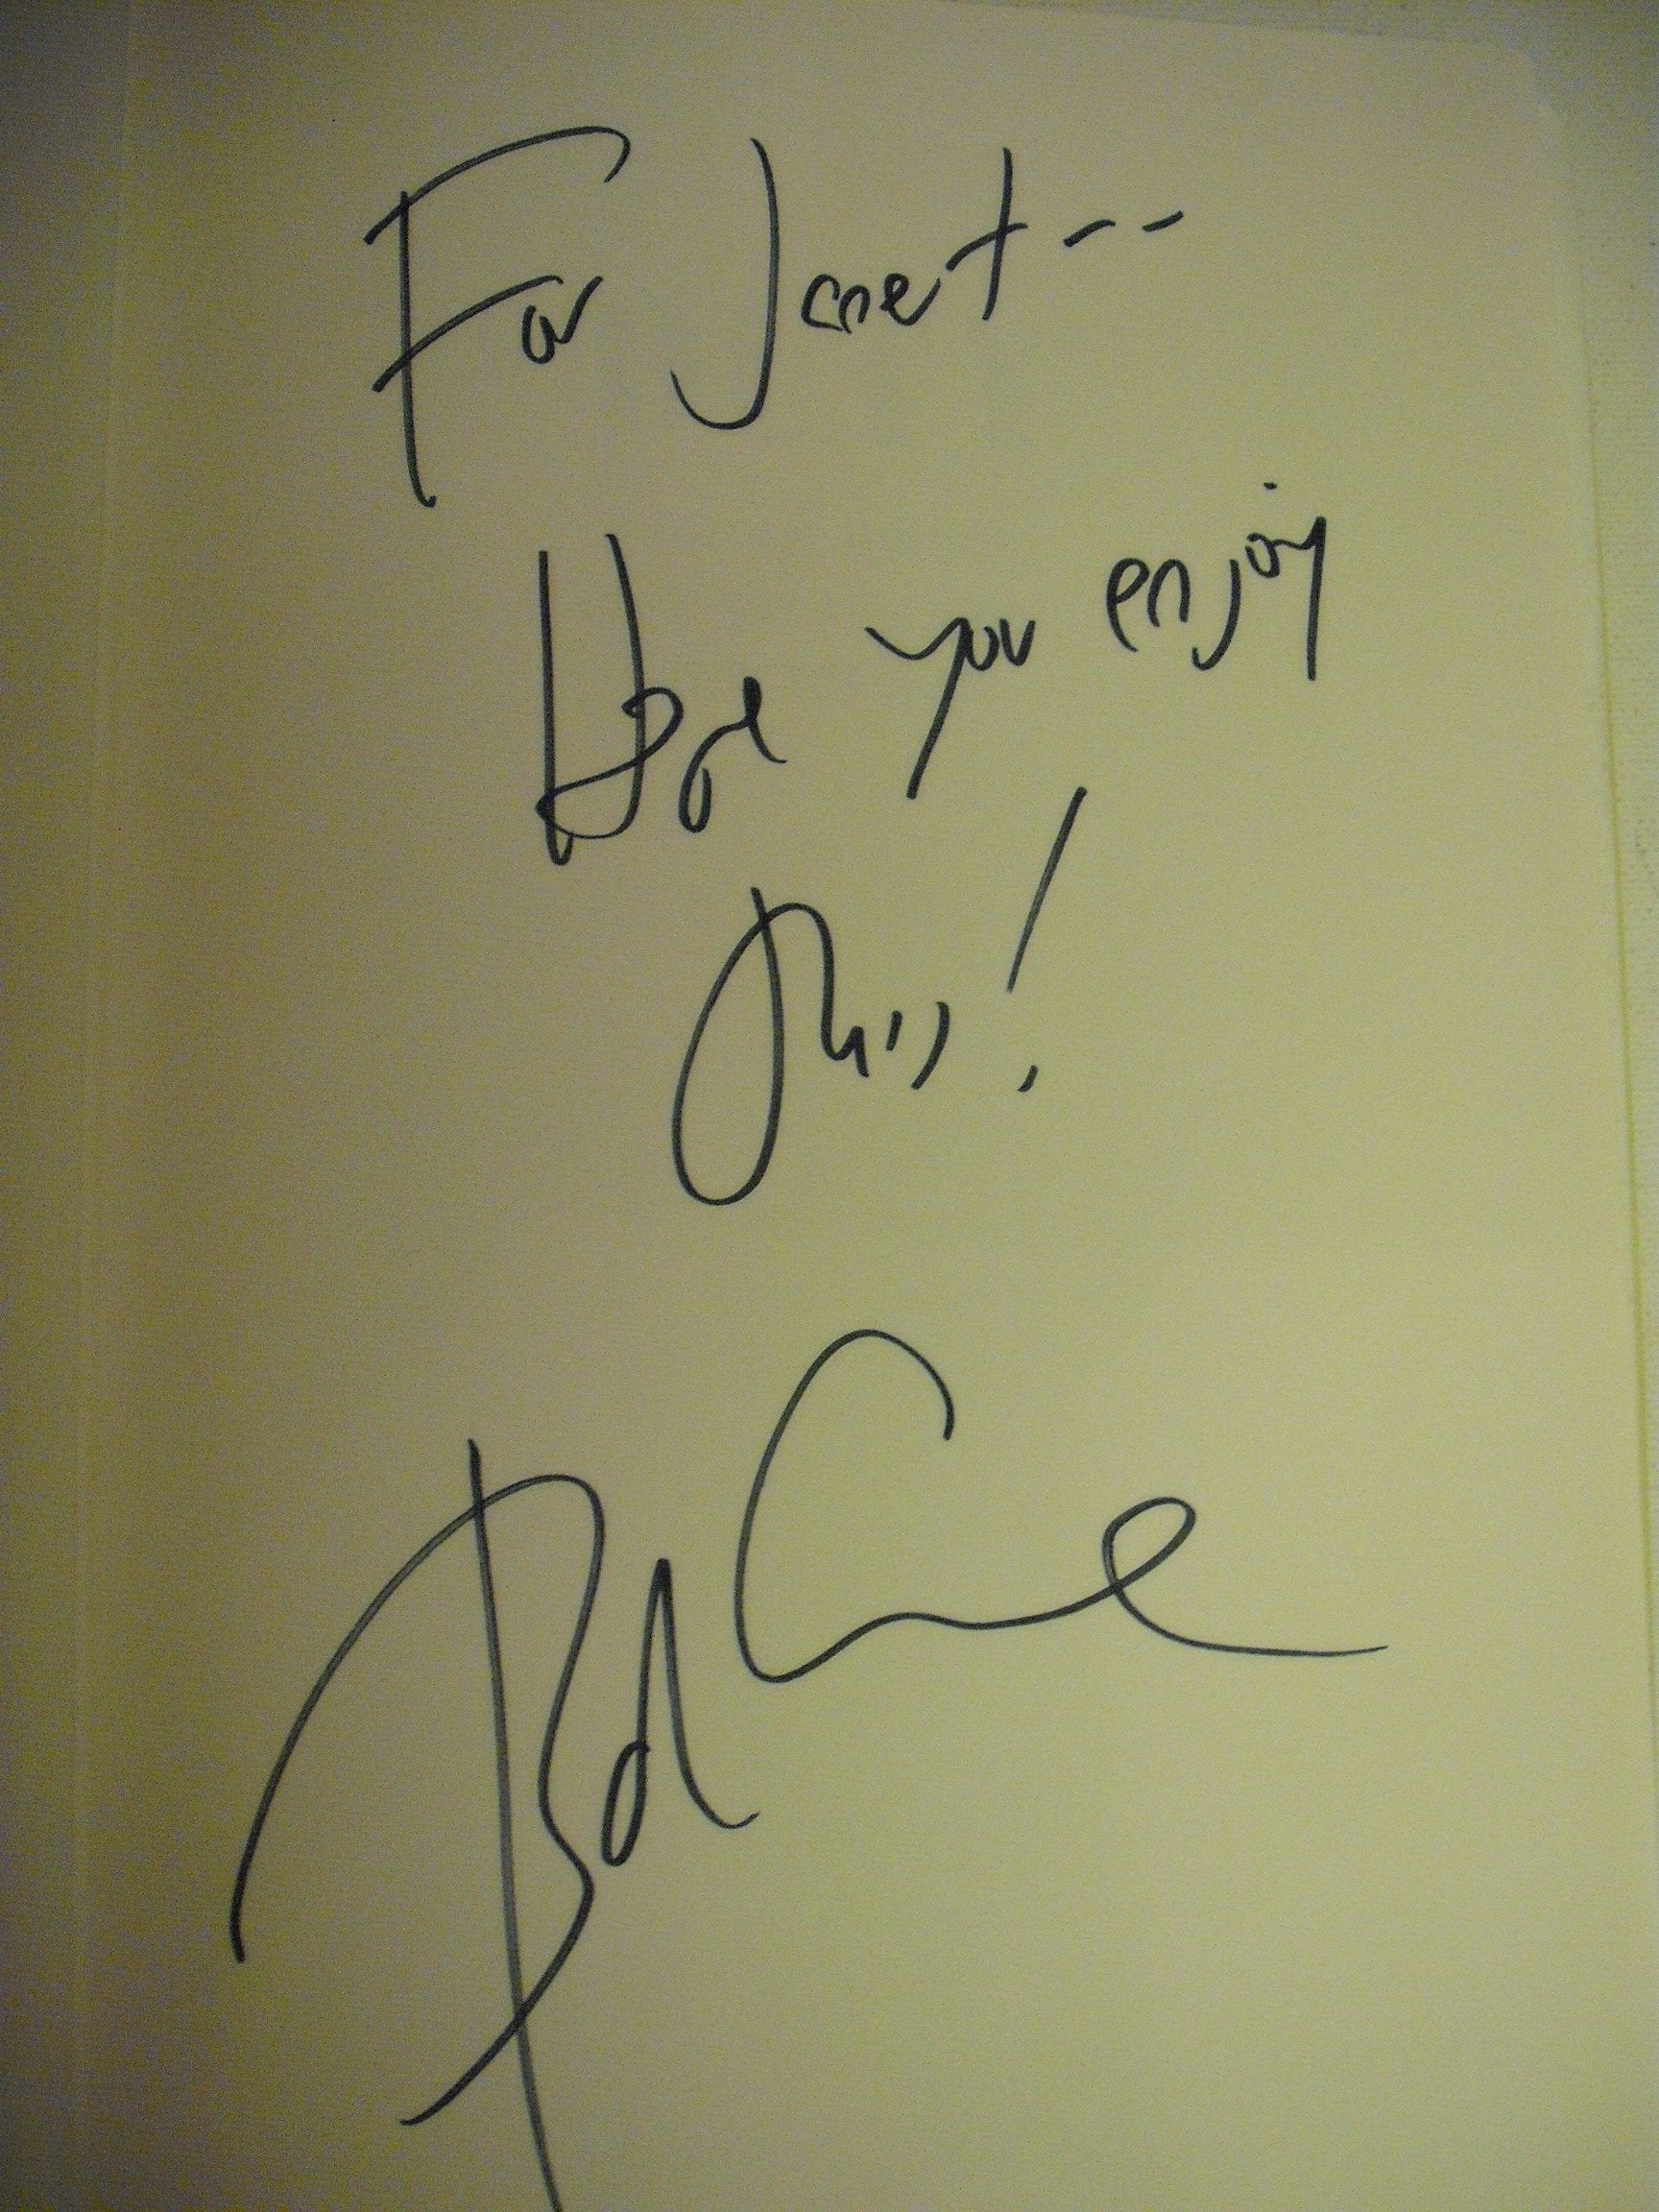 For Janet--
Hope you enjoy
this!